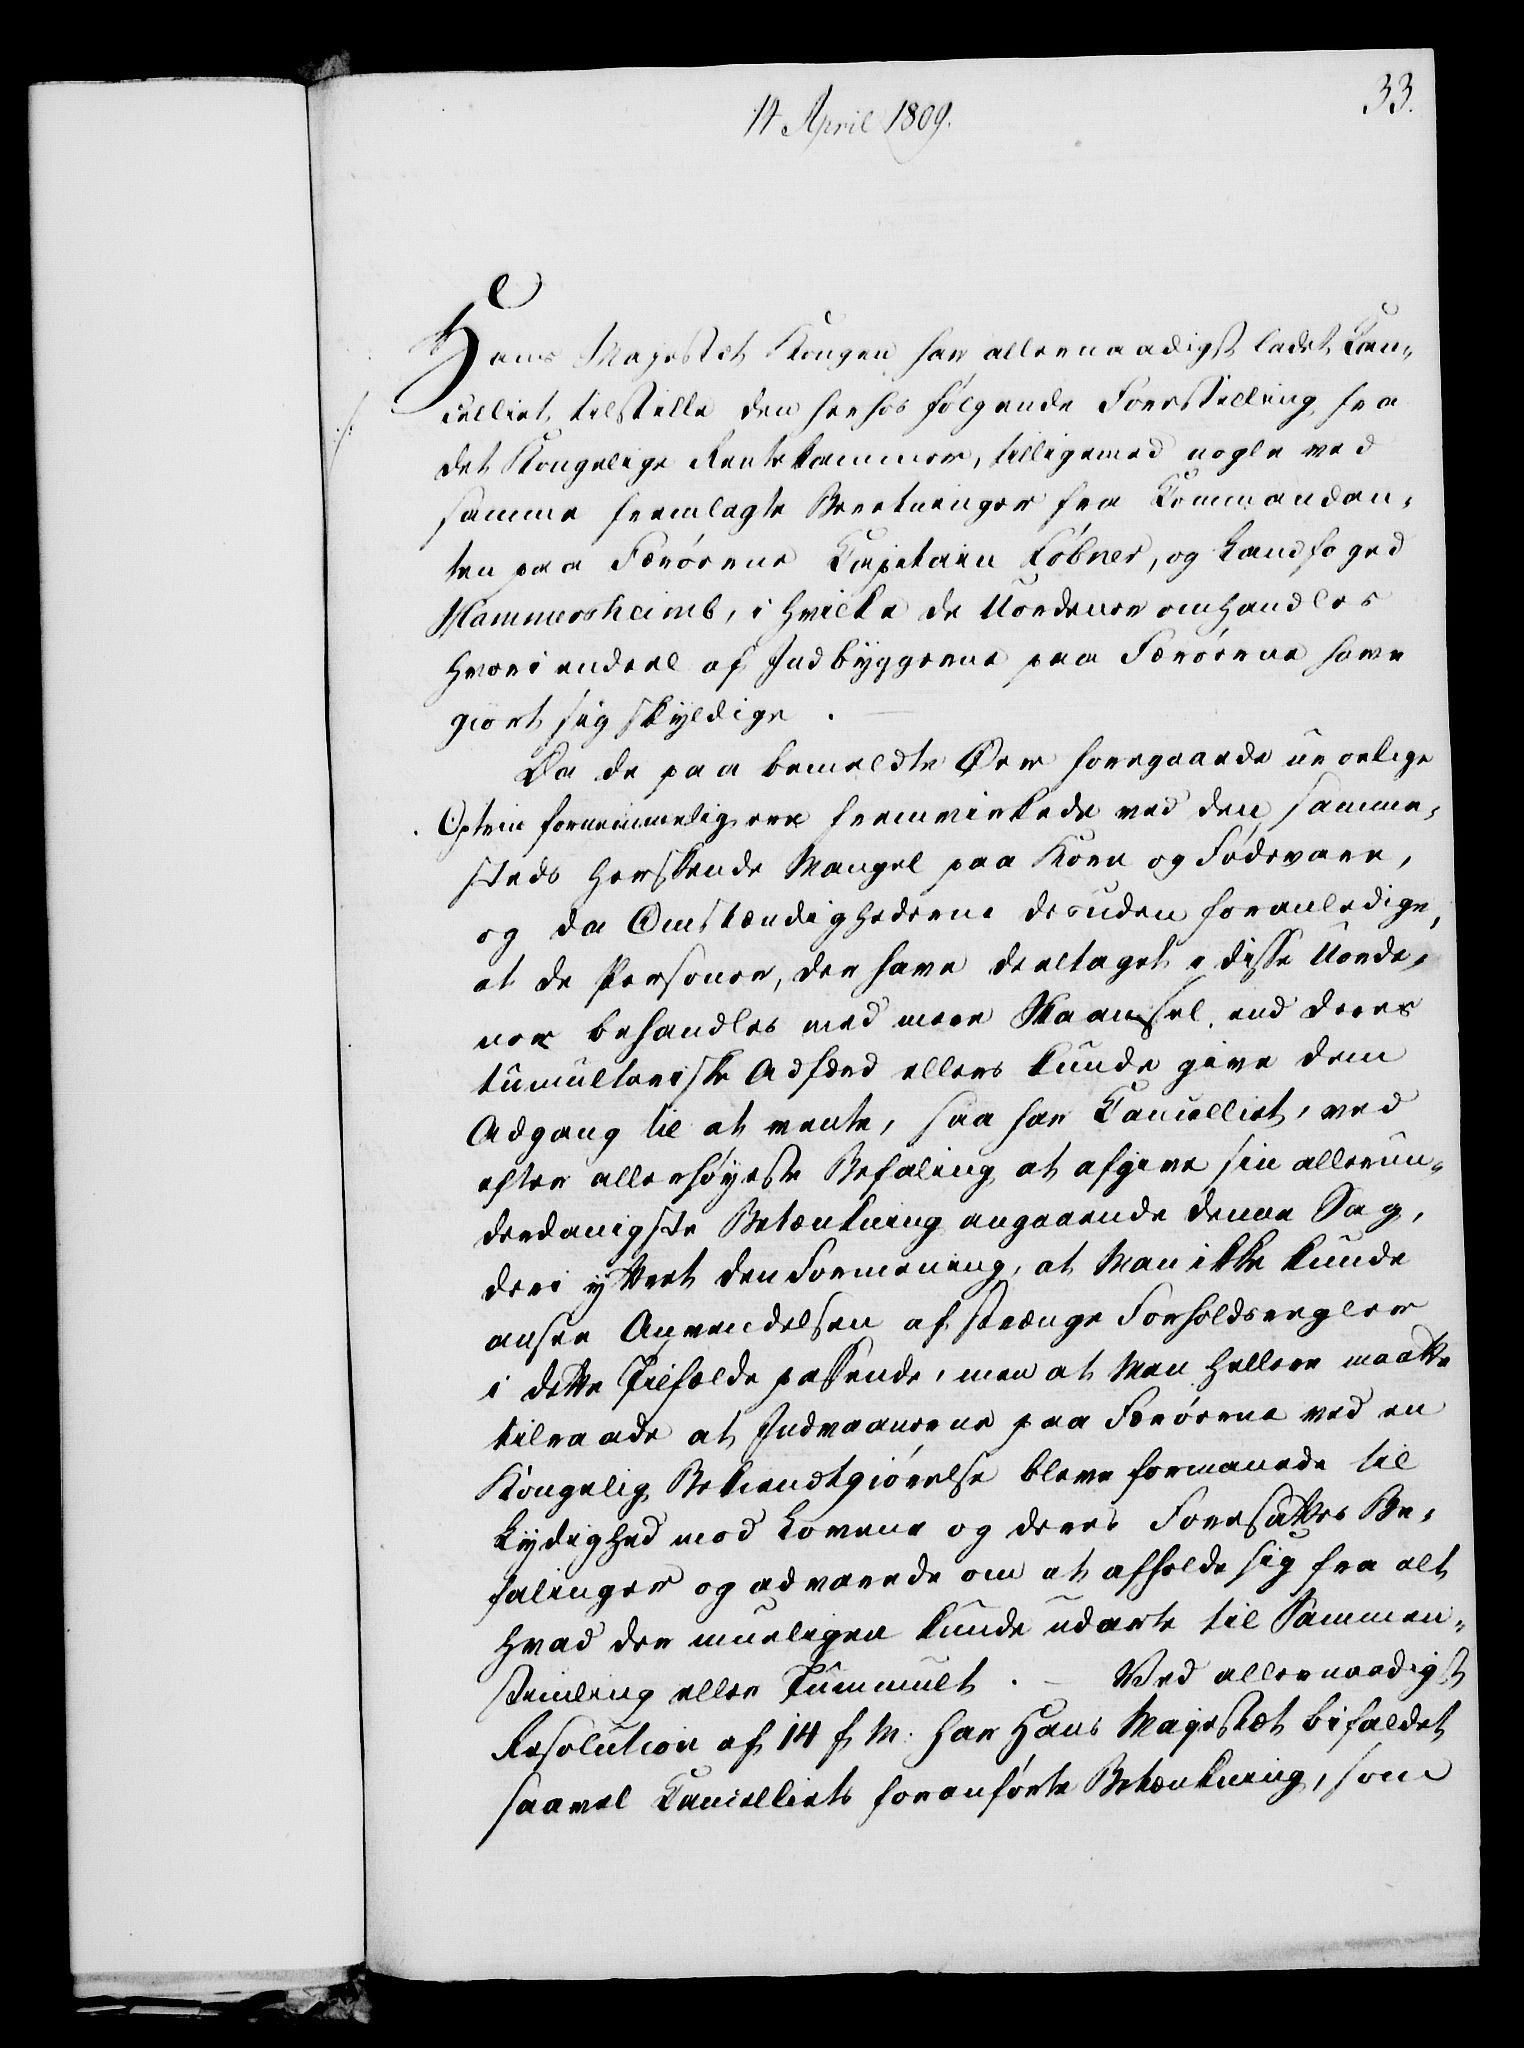 33.
14 April 1809.
Hans Majestæt Kongen har allernaadigst ladet Can-
celliet tilstille den herhos følgende Forestilling fra
det Kongelige Rentekammer, tilligemed nogle ved
samme fremlagte Beretninger fra Commandan-
ten paa Færøerne Capitain Løbner, og Landfoged
Hammersheimb, i hvilke de Uordener omhandles
hvori endeel af Indbyggerne paa Færøerne have
giort sig skyldige.
Da de paa bemeldte Øer foregaaede urolige
Optrin fornemmelig ere fremvirkede ved den samme-
steds herskende Mangel paa Korn og Fødevare,
og da Omstændighederne desuden foranledige,
at de Personer, der have deeltaget i disse Uorde-
ner behandles med mere Skaansel end deres
tumultariske Adfærd ellers kunde give dem
Adgang til at vente, saa har Cancelliet, ved
efter allerhøyeste Befaling at afgive sin allerun-
derdanigste Betænkning angaaende denne Sag,
deri yttret den Formening, at Man ikke kunde
ansee Anvendelsen af strænge Forholdsregler
i dette Tilfælde passende, men at Man hellere maatte
tilraade at Indvaanerne paa Færøerne ved en
Kongelig Bekiendtgiørelse bleve formanede til
Lydighed mod Lovene og deres Foresattes Be-
falinger og advarede om at afholde sig fra alt
hvad der mueligen kunde udarte til Sammen-
stimling eller Tummult. – Ved allernaadigst
Resolution af 14 f. M. har Hans Majestæt bifaldet
saavel Cancelliets foranførte Betænkning, som